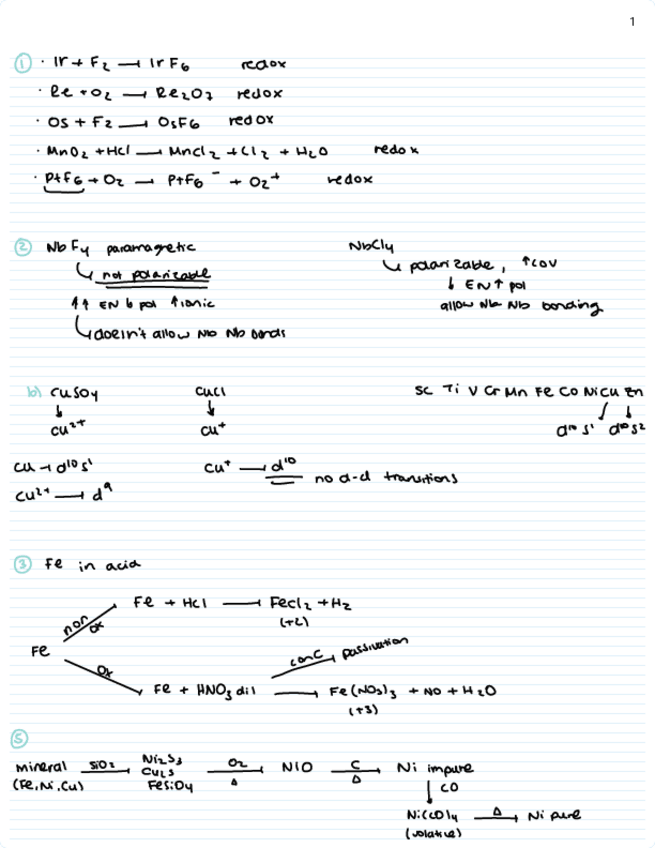 1
① · Ir + F2 → IrF6 redox
· Re + O2 → Re2O7 redox
· Os + F2 → OsF6 redox
· MnO2 + HCl → MnCl2 + Cl2 + H2O redox
· PtF6 + O2 → PtF6⁻ + O2⁺ redox
② NbF4 paramagnetic
↳ not polarizable
↑↑ EN ↓ pol ↑ ionic
↳ doesn't allow Nb Nb bonds
NbCl4
↳ polarizable, ↑ cov
↓ EN ↑ pol
allow Nb Nb bonding
b) CuSO4
↓
Cu²⁺
Cu → d¹⁰s¹
Cu²⁺ → d⁹
CuCl
↓
Cu⁺
Cu⁺ → d¹⁰
no d-d transitions
Sc Ti V Cr Mn Fe Co Ni Cu Zn
d¹⁰s¹ d¹⁰s²
③ Fe in acid
Fe
non ox
Fe + HCl → FeCl2 + H2
(+2)
ox
conc → passivation
Fe + HNO3 dil → Fe(NO3)3 + NO + H2O
(+3)
⑤
mineral
(Fe, Ni, Cu)
SiO2 →
Ni2S3
Cu2S
FeSiO4
O2 →
Δ
NiO
C →
Δ
Ni impure
↓ CO
Ni(CO)4
(volatile)
Δ → Ni pure